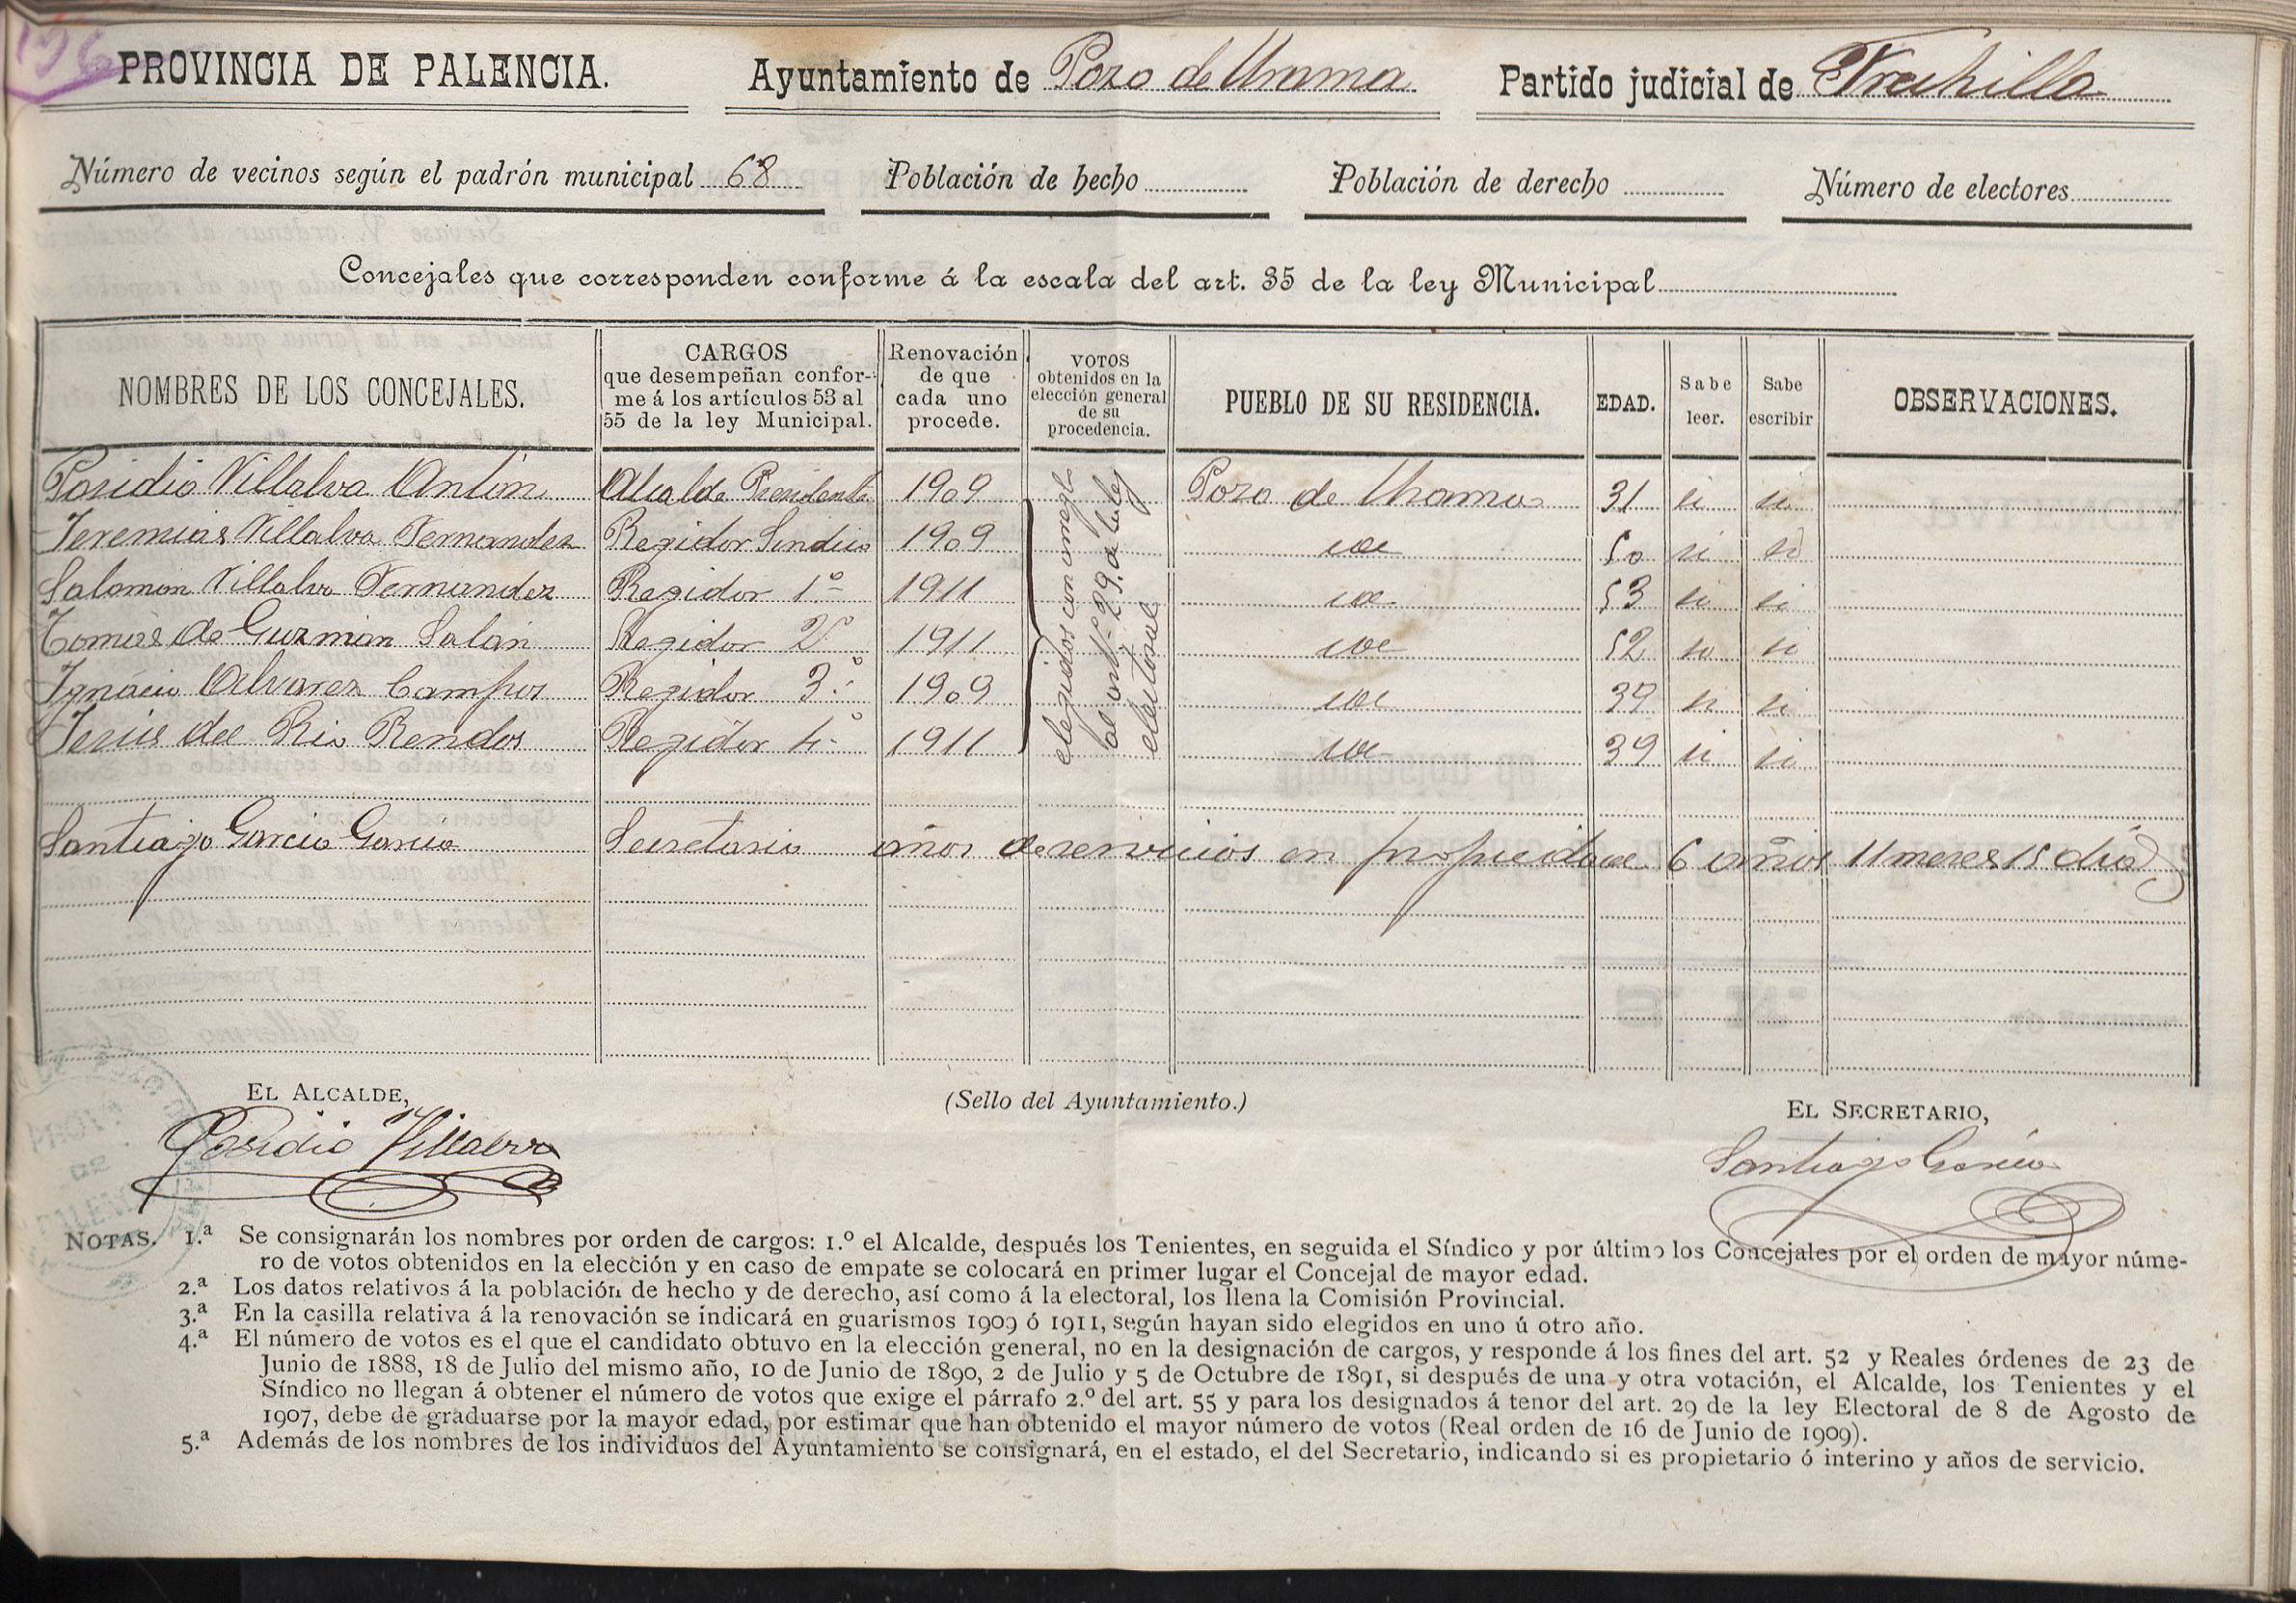 196
PROVINCIA DE PALENCIA. Ayuntamiento de Pozo de Urama Partido judicial de Frechilla
Número de vecinos según el padrón municipal 68 Población de hecho Población de derecho Número de electores
Concejales que corresponden conforme á la escala del art. 35 de la ley Municipal
NOMBRES DE LOS CONCEJALES.
CARGOS
que desempeñan confor-
me á los artículos 53 al
55 de la ley Municipal.
Renovación
de que
cada uno
procede.
VOTOS
obtenidos en la
elección general
de su
procedencia.
PUEBLO DE SU RESIDENCIA.
EDAD.
Sabe
leer.
Sabe
escribir
OBSERVACIONES.
Posidio Villalva Antón Alcalde Presidente 1909 Pozo de Urama 31 si si
Jeremias Villalva Fernandez Regidor Sindico 1909 id 50 si si
Salomon Villalva Fernandez Regidor 1º 1911 id 53 si si
Tomas de Guzman Salán Regidor 2º 1911 id 52 si si
Ignacio Alvarez Campos Regidor 3º 1909 id 39 si si
Jesus del Rio Rendos Regidor 4º 1911 id 39 si si
elegidos con arreglo
al artº 29 de la ley
electoral
Santiago Garcia Garcia Secretario años de servicios en propiedad 6 años 11 meses 15 dias
EL ALCALDE,
Posidio Villalva
(Sello del Ayuntamiento.)
EL SECRETARIO,
Santiago Garcia
NOTAS. 1.ª Se consignarán los nombres por orden de cargos: 1.º el Alcalde, después los Tenientes, en seguida el Síndico y por último los Concejales por el orden de mayor núme-
ro de votos obtenidos en la elección y en caso de empate se colocará en primer lugar el Concejal de mayor edad.
2.ª Los datos relativos á la población de hecho y de derecho, así como á la electoral, los llena la Comisión Provincial.
3.ª En la casilla relativa á la renovación se indicará en guarismos 1909 ó 1911, según hayan sido elegidos en uno ú otro año.
4.ª El número de votos es el que el candidato obtuvo en la elección general, no en la designación de cargos, y responde á los fines del art. 52 y Reales órdenes de 23 de
Junio de 1888, 18 de Julio del mismo año, 10 de Junio de 1890, 2 de Julio y 5 de Octubre de 1891, si después de una y otra votación, el Alcalde, los Tenientes y el
Síndico no llegan á obtener el número de votos que exige el párrafo 2.º del art. 55 y para los designados á tenor del art. 29 de la ley Electoral de 8 de Agosto de
1907, debe de graduarse por la mayor edad, por estimar que han obtenido el mayor número de votos (Real orden de 16 de Junio de 1909).
5.ª Además de los nombres de los individuos del Ayuntamiento se consignará, en el estado, el del Secretario, indicando si es propietario ó interino y años de servicio.